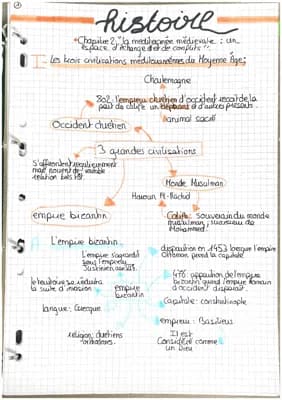 histoire
"Chapitre 2, "la méditerranée médiévale : un
espace d'échange et de conflits".
I- Les trois civilisations méditerranéennes du Moyenne Âge:
Charlemagne
802 l'empereur chrétien d'occident recoit de la
part du calife un éléphants et d'autres présents.
animal sacré
Occident chrétien
3 grandes civilisations
S'affrontent régulièrement
mais nouent de véritable
relation bcs [?].
Monde Musulman
Haroun Al-Rachid
empire bizantin
Calife: souverain du monde
musulman, successeur de
Mohammed.
A L'empire bizantin
L'empire s'agrandit
sous l'empereur
Justinien
disparition en 1453 lorsque l'empire
Ottoman, prend la capitale
le territoire se réduira
la suite d'invasion
empire
bizantin
476: apparition de l'empire
bizantin quand l'empire romain
d'occident disparait.
langue: Grecque
Capitale: constantinople
empereur: Basileus
religion: chrétiens
orthodoxes
Il est
Considéré comme
un Dieu